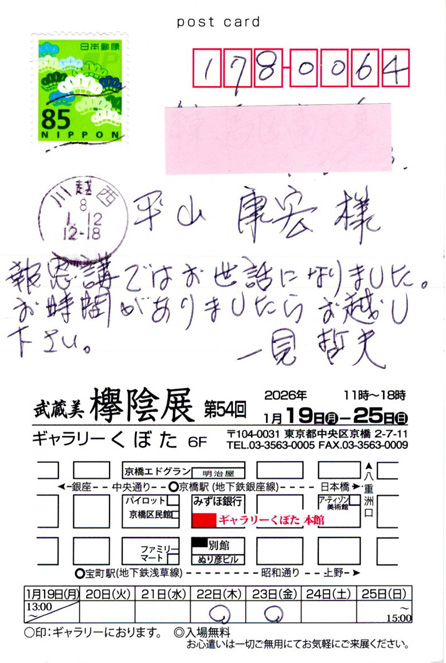 post card
日本郵便
85
NIPPON
178-0064
川越西
8
1.12
12-18
平山 康宏 様
報恩講ではお世話になりました。
お時間がありましたらお越し
下さい。 一見 哲夫
武蔵美 欅陰展 第54回
2026年 11時〜18時
1月19日(月)ー25日(日)
ギャラリーくぼた 6F
〒104-0031 東京都中央区京橋 2-7-11
TEL.03-3563-0005 FAX.03-3563-0009
京橋エドグラン 明治屋
←銀座 中央通り 京橋駅(地下鉄銀座線) 日本橋→
八重洲口
パイロット みずほ銀行 アーティゾン美術館
京橋区民館
ギャラリーくぼた 本館
別館
ファミリーマート ぬり彦ビル
宝町駅(地下鉄浅草線) 昭和通り 上野→
1月19日(月) 20日(火) 21日(水) 22日(木) 23日(金) 24日(土) 25日(日)
13:00〜 〜15:00
○印:ギャラリーにおります。 ◎入場無料
お心遣いは一切ご無用にてお気軽にご来展ください。